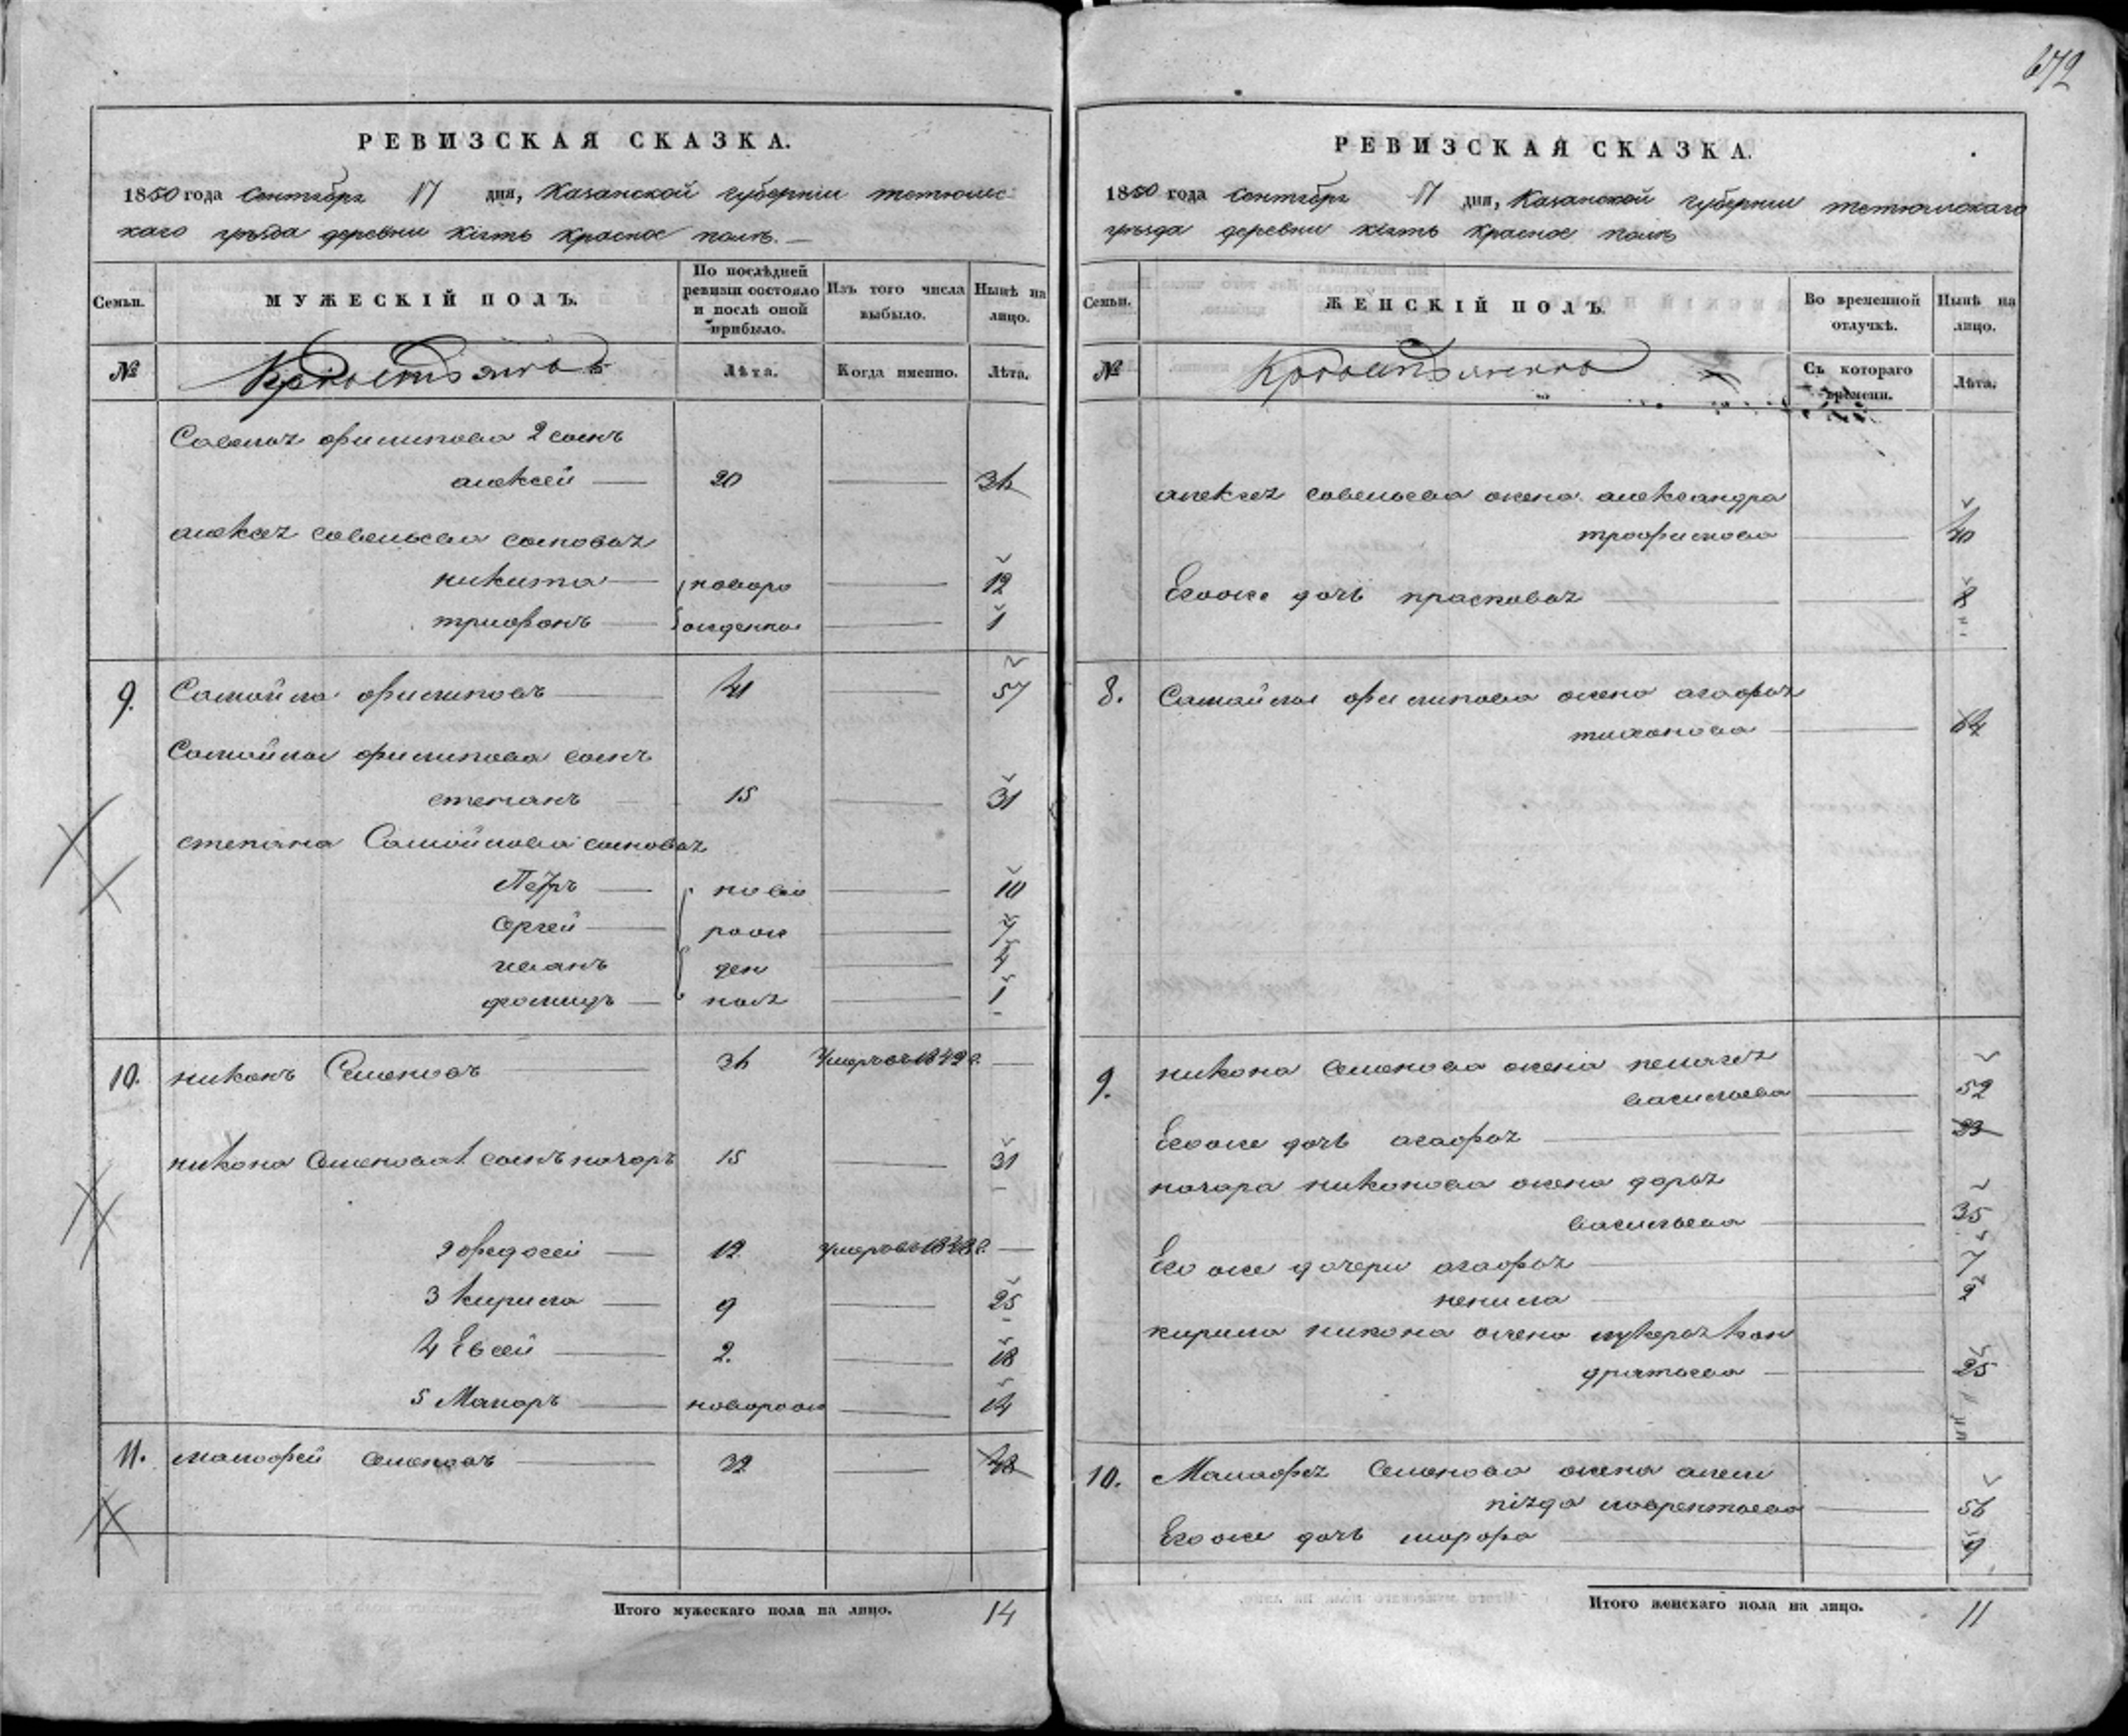 672
РЕВИЗСКАЯ СКАЗКА.
1850 года Сентября 17 дня, Казанской губернии тетюшс-
каго уѣзда деревни Кіять Красное поля.
Семьи. МУЖЕСКІЙ ПОЛЪ. По послѣдней ревизіи состояло и послѣ оной прибыло. Изъ того числа выбыло. Нынѣ на лицо.
№ Лѣта. Когда именно. Лѣта.
Савелья филипова 2 сынъ
алексей 20 36
алексея савельева сыновья
никита новоро 12
трифонъ жденныя 1
9. Самойла филиповъ 41 57
Самойлы филипова сынъ
степанъ 15 31
степана Самойлова сыновья
Петръ ново 10
Сергей рож 7
иванъ ден 4
фомидъ ныя 1
10. никонъ Семеновъ 36 Умеръ въ 1849 г.
никона Семенова 1. сынъ назаръ 15 31
2 федосей 12 Умеръ въ г.
3 кирила 9 25
4 Евсей 2. 18
5 Макаръ новорож 14
11. малофей Семеновъ 32 48
Итого мужескаго пола на лицо. 14
РЕВИЗСКАЯ СКАЗКА.
1850 года Сентября 17 дня, Казанской губернии тетюшскаго
уѣзда деревни Кіять Красное поля
Семьи. ЖЕНСКІЙ ПОЛЪ. Во временной отлучкѣ. Нынѣ на лицо.
№ Съ котораго времени. Лѣта.
алексея савельева жена александра
трофимова 40
Егоже дочь прасковья 8
8. Самойлы филипова жена агафья
тихонова 64
9. никона семенова жена пелагея
васильева 52
Егоже дочь агафья 23
назара никонова жена дарья
васильева 35
Его же дочери агафья 7
ненила 2
кирила никона жена лукерья кон
дратьева 25
10. Малафея Семенова жена алим
піяда лаврентьева 56
Егоже дочь 9
Итого женскаго пола на лицо. 11